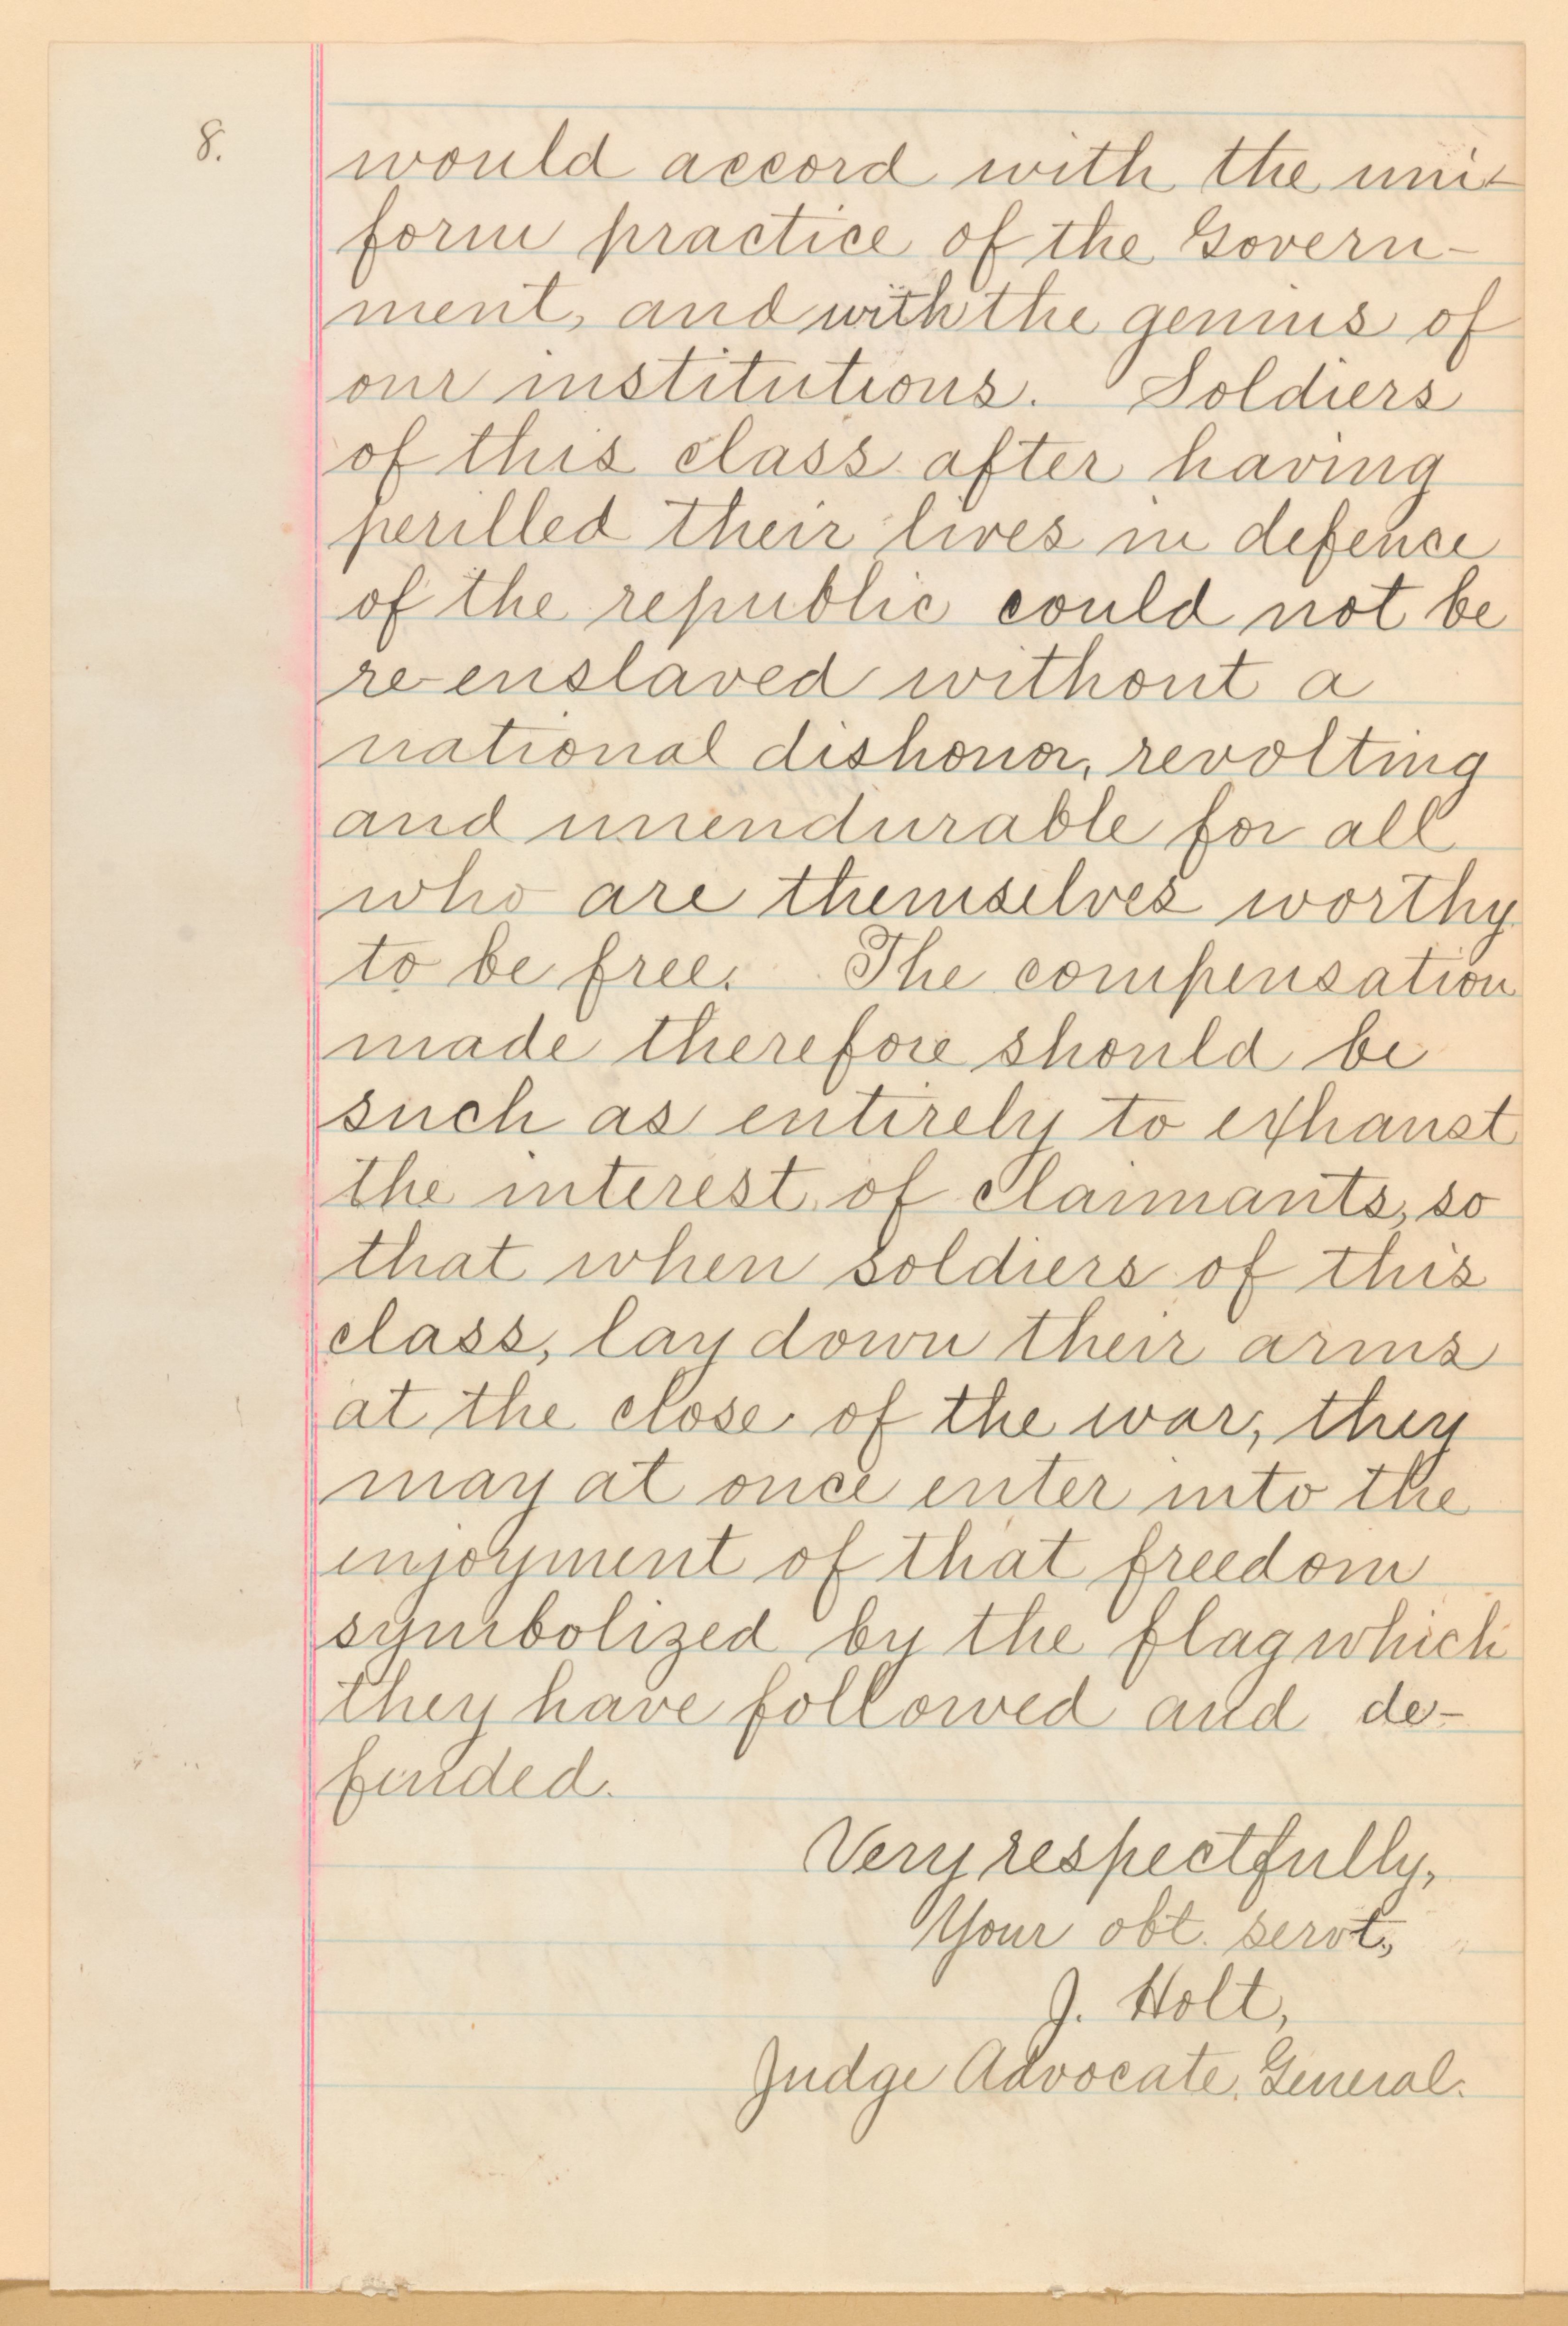 8.
would accord with the uni-
form practice of the Govern-
ment, and with the genius of
our institutions. Soldiers
of this class after having
perilled their lives in defence
of the republic could not be
re-enslaved without a
national dishonor, revolting
and unendurable for all
who are themselves worthy
to be free. The compensation
made therefore should be
such as entirely to exhaust
the interest of claimants, so
that when soldiers of this
class, lay down their arms
at the close of the war, they
may at once enter into the
enjoyment of that freedom
symbolized by the flag which
they have followed and de-
fended.
Very respectfully,
Your obt. servt.,
J. Holt,
Judge Advocate General.